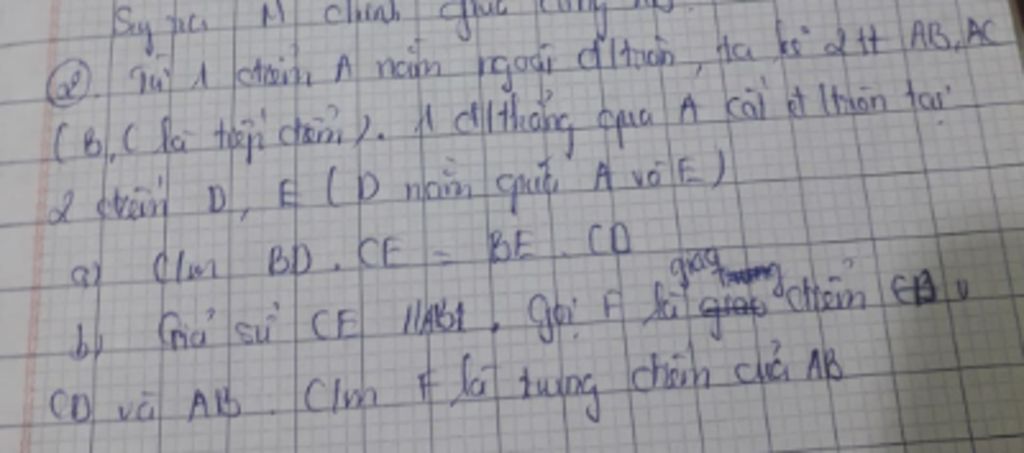 (2). Từ 1 điểm A nằm ngoài đ/tròn, ta kẻ 2 tt AB, AC
(B, C là tiếp điểm). 1 đ/thẳng qua A cắt đ/tròn tại
2 điểm D, E (D nằm giữa A và E)
a) C/m BD . CE = BE . CD
b) Giả sử CE // AB, gọi F là giao điểm
CD và AB. C/m F là trung điểm của AB